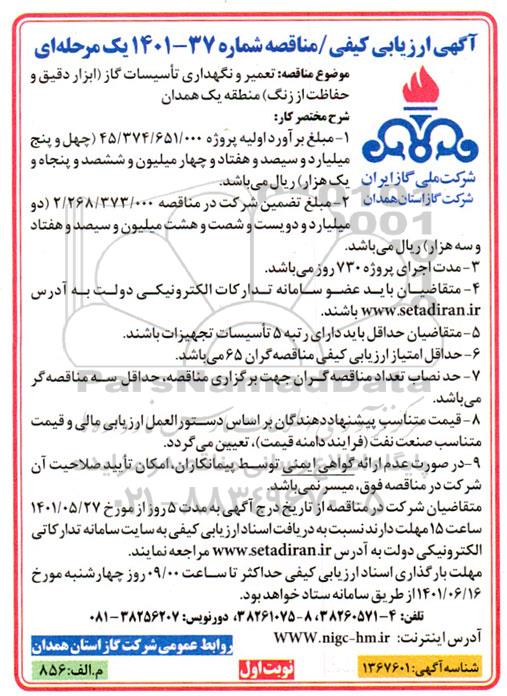 آگهی ارزیابی کیفی /مناقصه شماره ۳۷-۱۴۰۱ یک مرحله‌ای
موضوع مناقصه: تعمیر و نگهداری تأسیسات گاز (ابزار دقیق و
حفاظت از زنگ) منطقه یک همدان
شرح مختصر کار:
۱-مبلغ برآورد اولیه پروژه ۴۵/۳۷۴/۶۵۱/۰۰۰ (چهل و پنج
میلیارد و سیصد و هفتاد و چهار میلیون و ششصد و پنجاه و
یک هزار) ریال می‌باشد.
شرکت ملی گاز ایران
شرکت گاز استان همدان
۲-مبلغ تضمین شرکت در مناقصه ۲/۲۶۸/۳۷۳/۰۰۰ (دو
میلیارد و دویست و شصت و هشت میلیون و سیصد و هفتاد
و سه هزار) ریال می‌باشد.
۳-مدت اجرای پروژه ۷۳۰ روز می‌باشد.
۴-متقاضیان باید عضو سامانه تدارکات الکترونیکی دولت به آدرس
www.setadiran.ir باشند.
۵-متقاضیان حداقل باید دارای رتبه ۵ تأسیسات تجهیزات باشند.
۶-حداقل امتیاز ارزیابی کیفی مناقصه‌گران ۶۵ می‌باشد.
۷-حد نصاب تعداد مناقصه‌گران جهت برگزاری مناقصه، حداقل سه مناقصه‌گر
می‌باشد.
۸-قیمت متناسب پیشنهاددهندگان بر اساس دستورالعمل ارزیابی مالی و قیمت
متناسب صنعت نفت (فرایند دامنه قیمت)، تعیین می‌گردد.
۹-در صورت عدم ارائه گواهی ایمنی توسط پیمانکاران، امکان تأیید صلاحیت آن
شرکت در مناقصه فوق، میسر نمی‌باشد.
متقاضیان شرکت در مناقصه از تاریخ درج آگهی به مدت ۵ روز از مورخ ۱۴۰۱/۰۵/۲۷
ساعت ۱۵ مهلت دارند نسبت به دریافت اسناد ارزیابی کیفی به سایت سامانه تدارکاتی
الکترونیکی دولت به آدرس www.setadiran.ir مراجعه نمایند.
مهلت بارگذاری اسناد ارزیابی کیفی حداکثر تا ساعت ۰۹/۰۰ روز چهارشنبه مورخ
۱۴۰۱/۰۶/۱۶ از طریق سامانه ستاد خواهد بود.
تلفن: ۴-۳۸۲۶۰۵۷۱، ۸-۳۸۲۶۱۰۷۵، دورنویس: ۳۸۲۵۶۲۰۷-۰۸۱
آدرس اینترنت: WWW.nigc-hm.ir
روابط عمومی شرکت گاز استان همدان
شناسه آگهی: ۱۳۶۷۶۰۱
نوبت اول
م.الف: ۸۵۶
ParsNamadData
۰۲۱-۸۸۳۴۹۶۷۰-۵